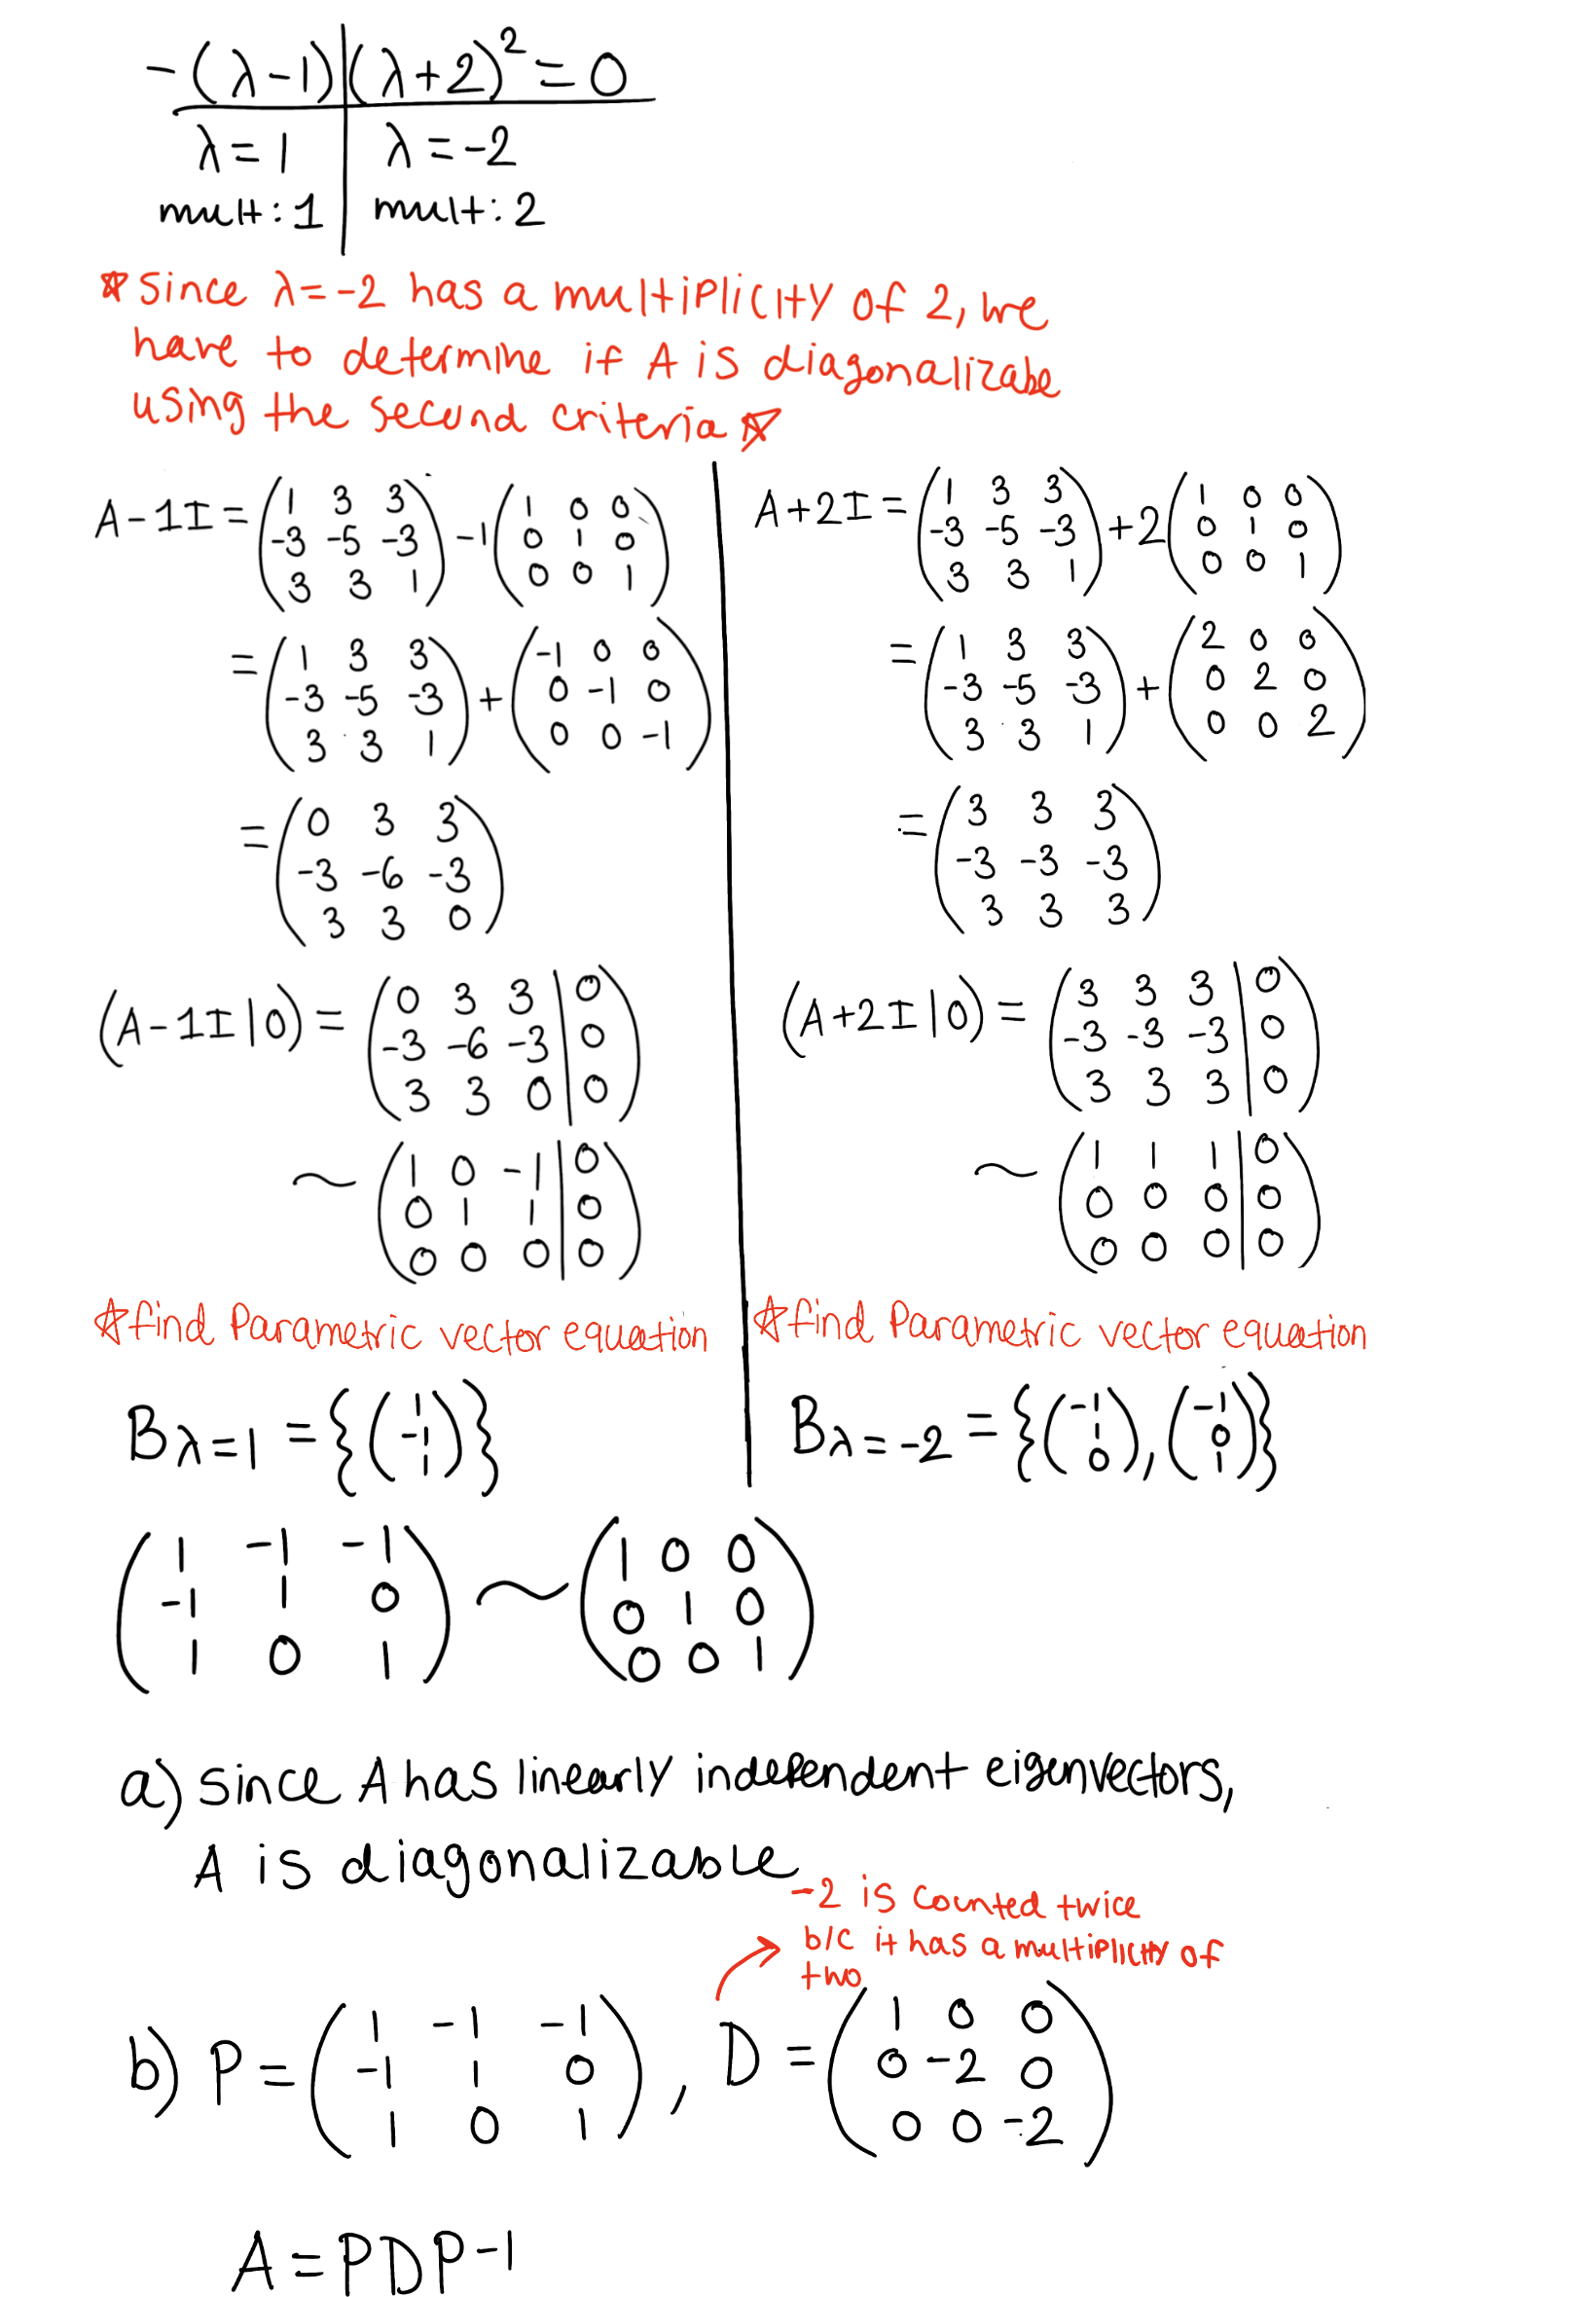 -(λ-1)|(λ+2)²=0
λ=1 | λ=-2
mult:1 | mult:2
☆ Since λ=-2 has a multiplicity of 2, we
have to determine if A is diagonalizabe
using the second criteria ☆
A-1I = (1 3 3; -3 -5 -3; 3 3 1) -1(1 0 0; 0 1 0; 0 0 1)
= (1 3 3; -3 -5 -3; 3 3 1) + (-1 0 0; 0 -1 0; 0 0 -1)
= (0 3 3; -3 -6 -3; 3 3 0)
(A-1I|0) = (0 3 3 | 0; -3 -6 -3 | 0; 3 3 0 | 0)
~ (1 0 -1 | 0; 0 1 1 | 0; 0 0 0 | 0)
☆ find Parametric vector equation
B λ=1 = {(1; -1; 1)}
A+2I = (1 3 3; -3 -5 -3; 3 3 1) +2(1 0 0; 0 1 0; 0 0 1)
= (1 3 3; -3 -5 -3; 3 3 1) + (2 0 0; 0 2 0; 0 0 2)
= (3 3 3; -3 -3 -3; 3 3 3)
(A+2I|0) = (3 3 3 | 0; -3 -3 -3 | 0; 3 3 3 | 0)
~ (1 1 1 | 0; 0 0 0 | 0; 0 0 0 | 0)
☆ find Parametric vector equation
B λ=-2 = {(-1; 1; 0), (-1; 0; 1)}
(1 -1 -1; -1 1 0; 1 0 1) ~ (1 0 0; 0 1 0; 0 0 1)
a) since A has linearly independent eigenvectors,
A is diagonalizable
-2 is counted twice
b/c it has a multiplicity of
two
b) P = (1 -1 -1; -1 1 0; 1 0 1), D = (1 0 0; 0 -2 0; 0 0 -2)
A = PDP-1